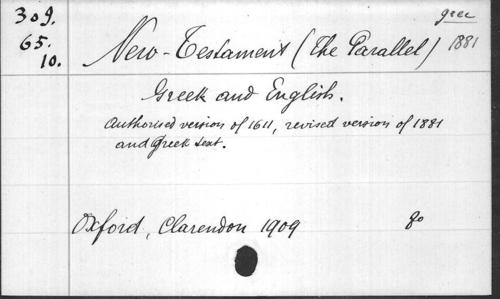 309.
65.
10.
grec
New-Testament (The Parallel) 1881
Greek and English.
Authorised version of 1611, revised version of 1881
and Greek text.
Oxford, Clarendon 1909 8o